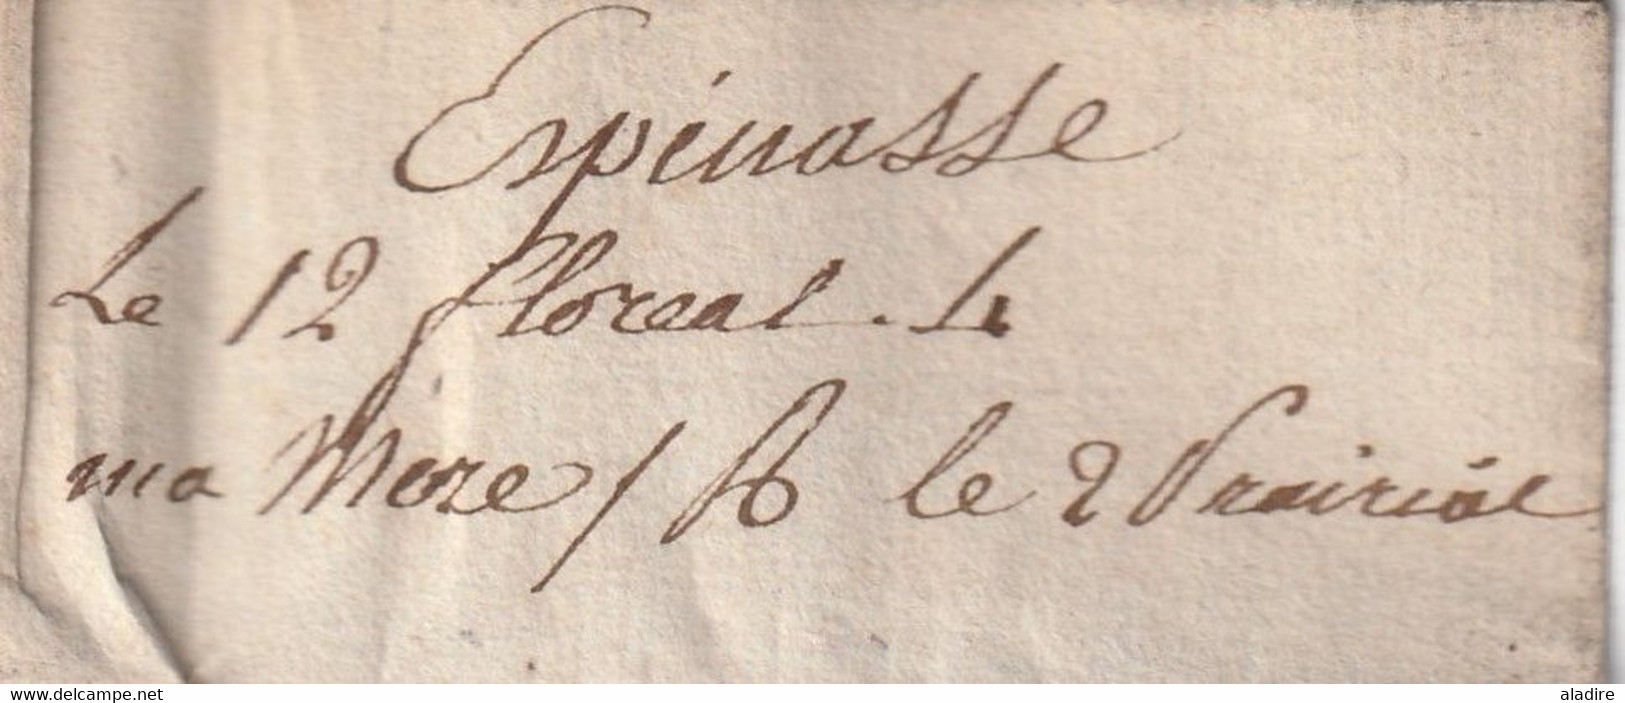 Espinasse
Le 12 floreal. 4
ma Mere / R le 2 Prairial
www.delcampe.net
aladire